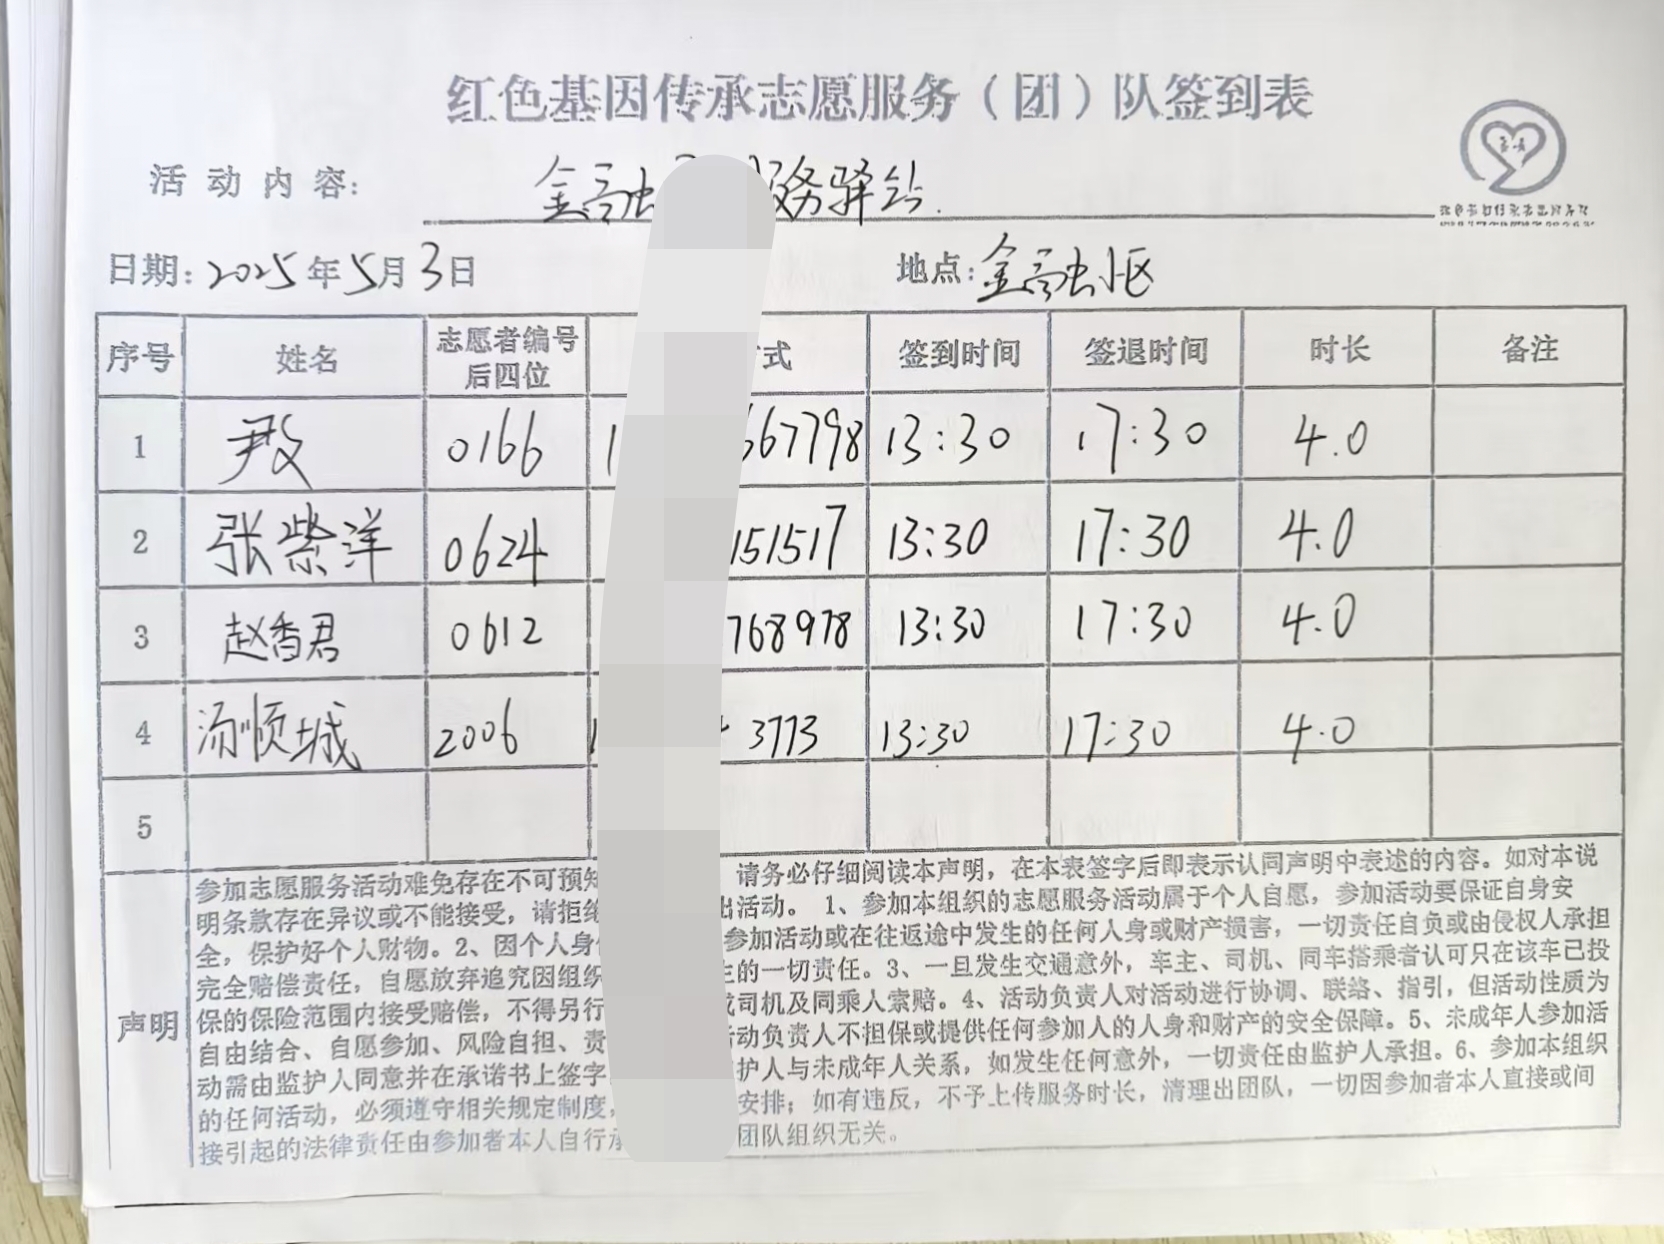 红色基因传承志愿服务（团）队签到表
活动内容: 金融 服务驿站.
日期: 2025年5月3日 地点: 金融小区
序号 姓名 志愿者编号后四位 式 签到时间 签退时间 时长 备注
1 尹文 0166 1 667798 13:30 17:30 4.0
2 张紫洋 0624 151517 13:30 17:30 4.0
3 赵香君 0612 768978 13:30 17:30 4.0
4 汤顺城 2006 1 3773 13:30 17:30 4.0
5
声明
参加志愿服务活动难免存在不可预知 请务必仔细阅读本声明，在本表签字后即表示认同声明中表述的内容。如对本说
明条款存在异议或不能接受，请拒绝 出活动。 1、参加本组织的志愿服务活动属于个人自愿，参加活动要保证自身安
全，保护好个人财物。2、因个人身 参加活动或在往返途中发生的任何人身或财产损害，一切责任自负或由侵权人承担
完全赔偿责任，自愿放弃追究因组织 生的一切责任。3、一旦发生交通意外，车主、司机、同车搭乘者认可只在该车已投
保的保险范围内接受赔偿，不得另行 或司机及同乘人索赔。4、活动负责人对活动进行协调、联络、指引，但活动性质为
自由结合、自愿参加、风险自担、责 动负责人不担保或提供任何参加人的人身和财产的安全保障。5、未成年人参加活
动需由监护人同意并在承诺书上签字 护人与未成年人关系，如发生任何意外，一切责任由监护人承担。6、参加本组织
的任何活动，必须遵守相关规定制度， 安排；如有违反，不予上传服务时长，清理出团队，一切因参加者本人直接或间
接引起的法律责任由参加者本人自行承 团队组织无关。